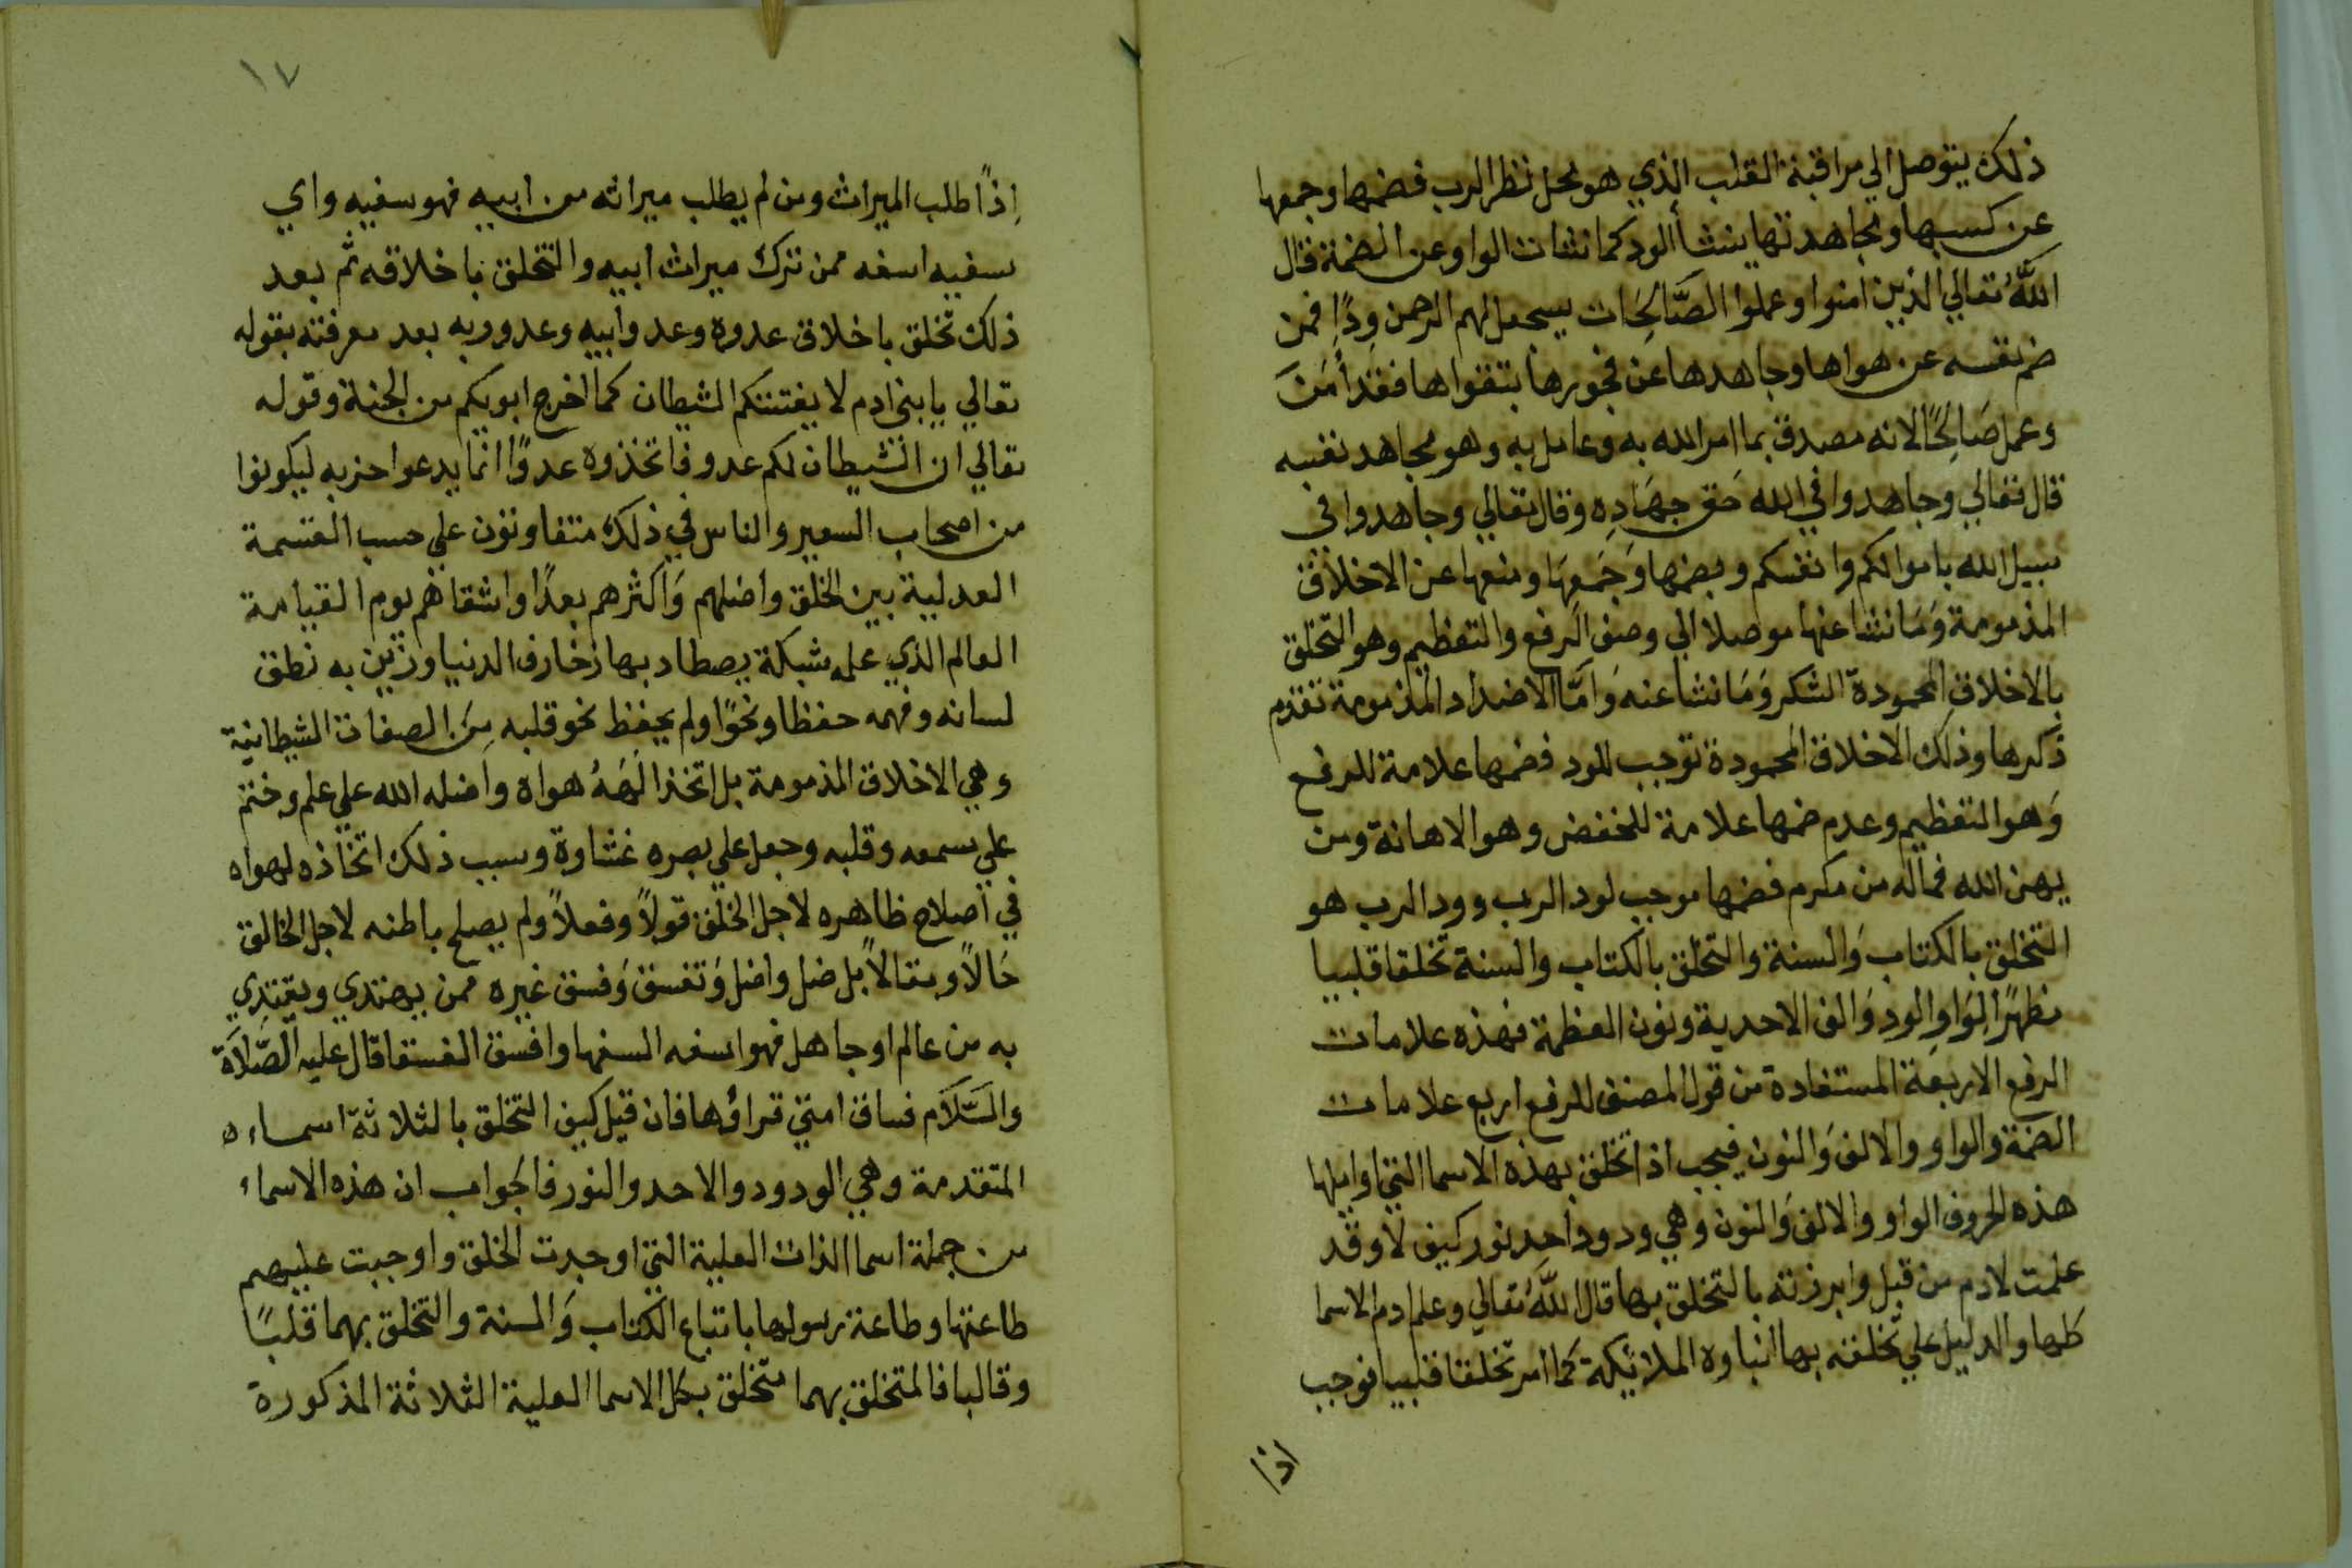 ذلك يتوصل الي مراقبة القلب الذي هو محل نظر الرب فضمها وجمعها
عن كسبها ومجاهدتها ينشأ الود كما نشات الواو عن الضمة قال
اللَّهُ تعالي الذين امنوا وعملوا الصَّالِحَات سيجعل لهم الرحمن وِدًا فمن
ضم نفسه عن هواها وجاهدها عن فجورها بتقواها فقد أمَنَ
وعمل صَالِحًا لانه مصدق بما امر الله به وعامل به وهو مجاهد نفسه
قال تعالي وجاهدوا في الله حَق جهَادِه وقال تعالي وجاهدوا في
سبيل الله باموالكم وانفسكم وبضمها وَجَمعِهَا ومنعها عن الاخلاق
المذمومة وَمَا نشا عنها موصلا الي وصف الرفع والتعظيم وهو التخلق
بالاخلاق المحمودة الشكر وَمَا نشا عنه وَامَّا الاضداد المذمومة تقدم
ذكرها وذلك الاخلاق المحمودة توجب للود فضمها علامة للرفع
وَهو التعظيم وعدم ضمها علامة للخفض وهو الاهانة ومن
يهن الله فماله من مكرم فضمها موجب لود الرب وود الرب هو
التخلق بالكتاب وَالسنة والتخلق بالكتاب والسنة تخلقا قلبيا
مظهرًا لِوَاوِ الودِ وَالف الاحدية ونون العظمة فهذه علامات
الرفع الاربعة المستفادة من قول المصنف للرفع اربع علامات
الضمة والواو والالف وَالنون فيجب اذا تخلق بهذه الاسما التي اوايلها
هذه الحروف الواو والالف وَالنون وهي ودود احد نور كيف لا وقد
علمت لادم من قبل وابرزته بالتخلق بها قال اللَّهُ تعالي وعلم ادم الاسما
كلها والدليل علي تخلقه بها انباوه الملائكة كما امر تخلقا قلبيا فوجب
اذا
١٧
اِذًا طلب الميراث ومن لم يطلب ميراثه من ابيه فهو سفيه واي
سفيه اسفه ممن ترك ميراث ابيه والتخلق باخلاقه ثم بعد
ذلك تخلق باخلاق عدوه وعدو ابيه وعدو ربه بعد معرفته بقوله
تعالي يا بني ادم لا يفتننكم الشيطان كما اخرج ابويكم من الجنة وقوله
تعالي ان الشيطان لكم عدو فاتخذوه عدوًا انما يدعوا حزبه ليكونوا
من اصحاب السعير والناس في ذلك متفاوتون علي حسب القسمة
العدلية بين الخلق واضلهم وَاكثرهم بعدًا واشقاهم يوم القيامة
العالم الذي علمه شبكة يصطاد بها زخارف الدنيا وزين به نطق
لسانه وفهمه حفظا ونحوًا ولم يحفظ نحو قلبه مِنَ الصفات الشيطانية
وهي الاخلاق المذمومة بل اتخذ الَهَهُ هواه واضله الله علي علم وختم
علي سمعه وقلبه وجعل علي بصره غشاوة وسبب ذلك اتخاذه لهواه
في اصلاح ظاهره لاجل الخلق قولاً وفعلاً ولم يصلح باطنه لاجل الخالق
حَالاً ومقالاً بل ضل واضل وَتفسق وَفسق غيره ممن يهتدي ويقتدي
به من عالم او جاهل فهو اسفه السفها وافسق الفسقا قال عليه الصَّلاَة
والسَّلاَم فساق امتي قراؤها فان قيل كيف التخلق بالثلاثة اسماءه
المتقدمة وهي الودود والاحد والنور فالجواب ان هذه الاسماء
من جملة اسما الذات العلية التي اوجدت الخلق واوجبت عليهم
طاعتها وطاعة رسولها باتباع الكتاب وَالسنة والتخلق بهما قلبًا
وقالبا فالمتخلق بهما متخلق بكل الاسما العلية الثلاثة المذكورة